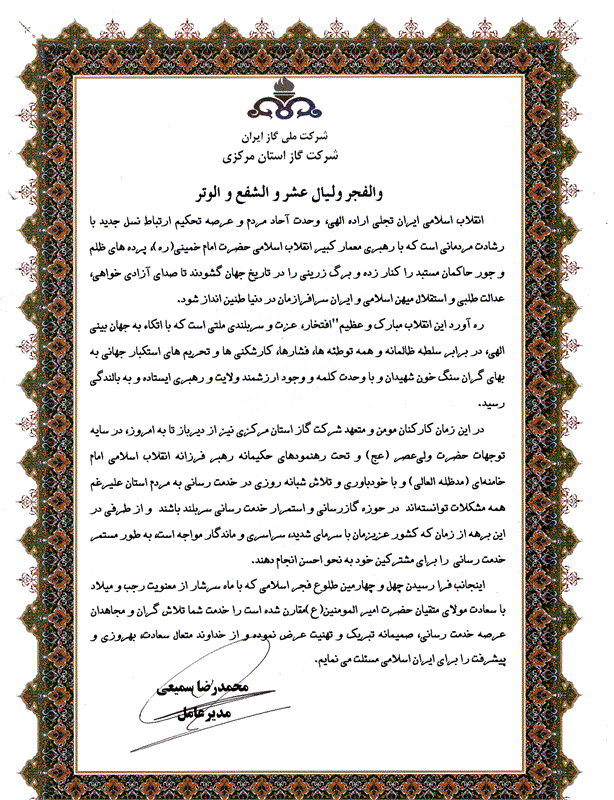 شرکت ملی گاز ایران
شرکت گاز استان مرکزی
والفجر ولیال عشر و الشفع و الوتر
انقلاب اسلامی ایران تجلی اراده الهی، وحدت آحاد مردم و عرصه تحکیم ارتباط نسل جدید با
رشادت مردمانی است که با رهبری معمار کبیر انقلاب اسلامی حضرت امام خمینی(ره)، پرده های ظلم
و جور حاکمان مستبد را کنار زده و برگ زرینی را در تاریخ جهان گشودند تا صدای آزادی خواهی،
عدالت طلبی و استقلال میهن اسلامی و ایران سرافرازمان در دنیا طنین انداز شود.
ره آورد این انقلاب مبارک و عظیم"افتخار، عزت و سربلندی ملتی است که با اتکاء به جهان بینی
الهی، در برابر سلطه ظالمانه و همه توطئه ها، فشارها، کارشکنی ها و تحریم های استکبار جهانی به
بهای گران سنگ خون شهیدان و با وحدت کلمه و وجود ارزشمند ولایت و رهبری ایستاده و به بالندگی
رسید.
در این زمان کارکنان مومن و متعهد شرکت گاز استان مرکزی نیز از دیرباز تا به امروز، در سایه
توجهات حضرت ولی‌عصر (عج) و تحت رهنمودهای حکیمانه رهبر فرزانه انقلاب اسلامی امام
خامنه‌ای (مدظله العالی) و با خودباوری و تلاش شبانه روزی در خدمت رسانی به مردم استان علیرغم
همه مشکلات توانسته‌اند در حوزه گازرسانی و استمرار خدمت رسانی سربلند باشند و از طرفی در
این برهه از زمان که کشور عزیزمان با سرمای شدید، سراسری و ماندگار مواجه است، به طور مستمر
خدمت رسانی را برای مشترکین خود به نحو احسن انجام دهند.
اینجانب فرا رسیدن چهل و چهارمین طلوع فجر اسلامی که با ماه سرشار از معنویت رجب و میلاد
با سعادت مولای متقیان حضرت امیر المومنین(ع)مقارن شده است را خدمت شما تلاش گران و مجاهدان
عرصه خدمت رسانی، صمیمانه تبریک و تهنیت عرض نموده و از خداوند متعال سعادت، بهروزی و
پیشرفت را برای ایران اسلامی مسئلت می نمایم.
محمدرضا سمیعی
مدیرعامل